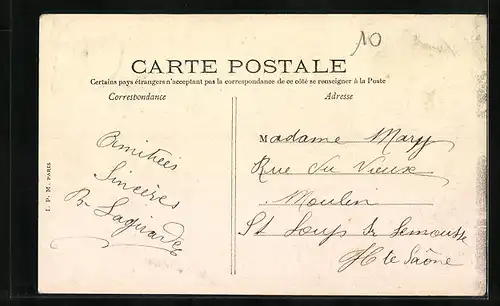 10
CARTE POSTALE
Certains pays étrangers n'acceptant pas la correspondance de ce côté se renseigner à la Poste
Correspondance
Adresse
Amitiées
Sincères
B.
Madame Mary
Rue du Vieux
Moulin
St Loup Sr Semouse
Hte Saône
I. P. M. PARIS